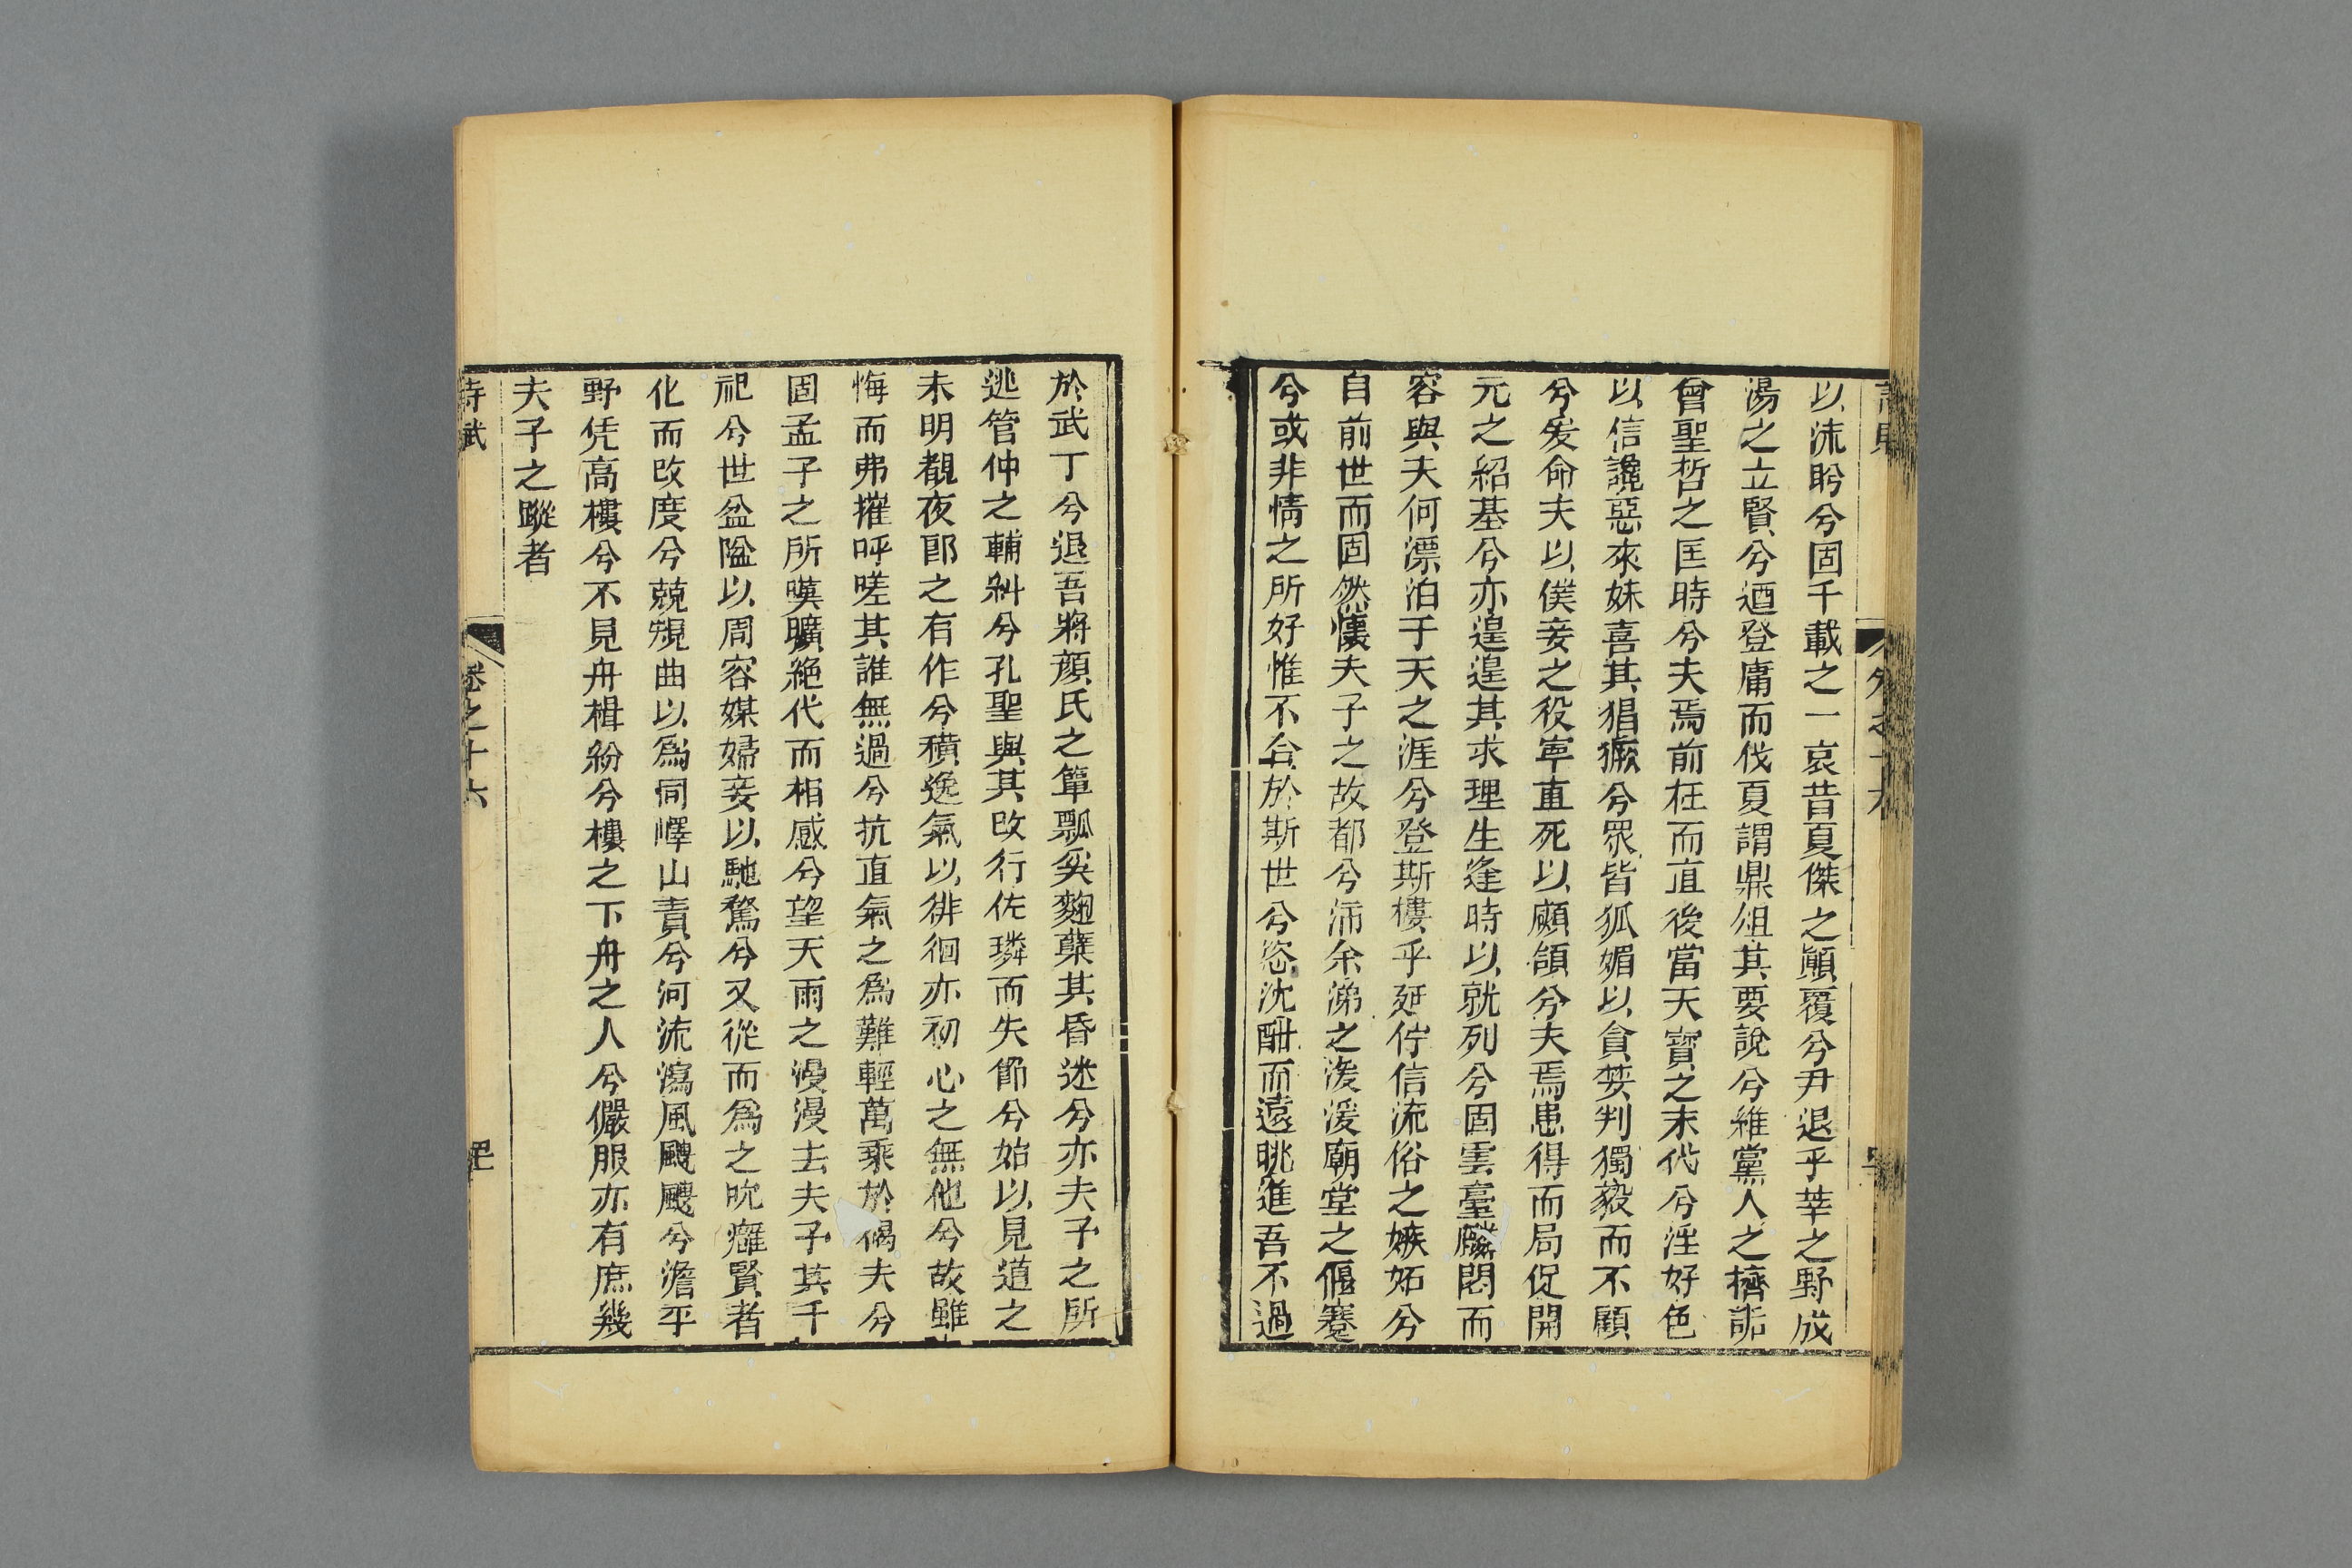 以流盻兮固千載之一哀昔夏傑之顚覆兮尹退乎莘之野成
湯之立賢兮迺登庸而伐夏謂鼎俎其要說兮維黨人之擠詬
曾聖哲之匡時兮夫焉前枉而直後當天寶之末代兮淫好色
以信讒惡來妹喜其猖獗兮眾皆狐媚以貪婪判獨毅而不顧
兮爰命夫以僕妾之役寧直死以顑頷兮夫焉患得而局促開
元之紹基兮亦遑遑其求理生逢時以就列兮固雲臺麟閣而
容與夫何漂泊于天之涯兮登斯樓乎延佇信流俗之嫉妬兮
自前世而固然懷夫子之故都兮沛余涕之湲湲廟堂之偃蹇
兮或非情之所好惟不合於斯世兮恣沈酣而遠眺進吾不過
於武丁兮退吾將顏氏之簞瓢奚麴糵其昏迷兮亦夫子之所
逃管仲之輔糾兮孔聖與其改行佐璘而失節兮始以見道之
未明覩夜郎之有作兮積逸氣以徘徊亦初心之無他兮故雖
悔而弗摧呼嗟其誰無過兮抗直氣之爲難輕萬乘於褐夫兮
固孟子之所嘆曠絶代而相感兮望天雨之漫漫去夫子其千
祀兮世益隘以周容媒婦妾以馳騖兮又從而爲之吮癰賢者
化而改度兮競規曲以爲同嶧山責兮河流瀉風颼颼兮澹平
野凭高樓兮不見舟楫紛兮樓之下舟之人兮儼服亦有庶幾
夫子之蹤者
卷之十六